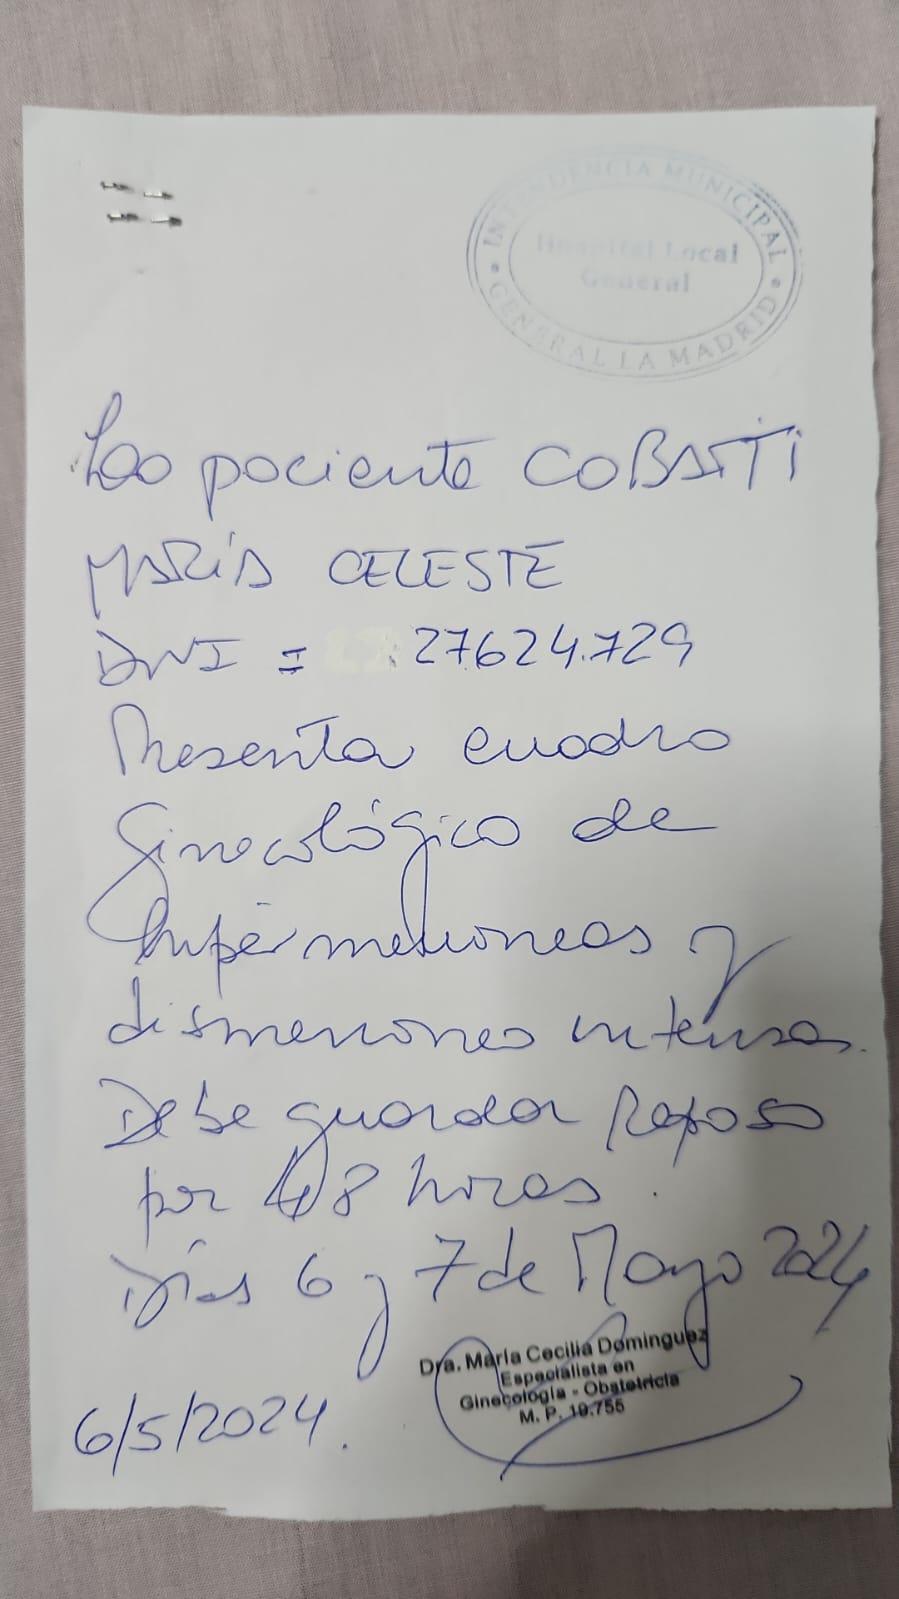 INTENDENCIA MUNICIPAL
Hospital Local
General
GENERAL LA MADRID
La paciente COBAITI
MARÍA CELESTE
DNI = 27.624.729
Presenta cuadro
Ginecológico de
hipermenorreas y
dismenorreas intensas.
Debe guardar Reposo
por 48 horas.
Días 6 y 7 de Mayo 2024
Dra. María Cecilia Dominguez
Especialista en
Ginecología - Obstetricia
M. P. 19.755
6/5/2024.